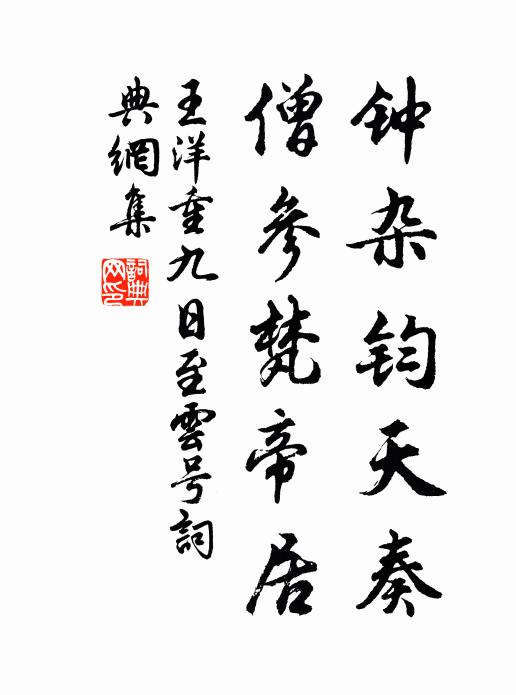 钟杂钧天奏
僧参梵帝居
王洋重九日至雲号詞
典網集
詞典
网印